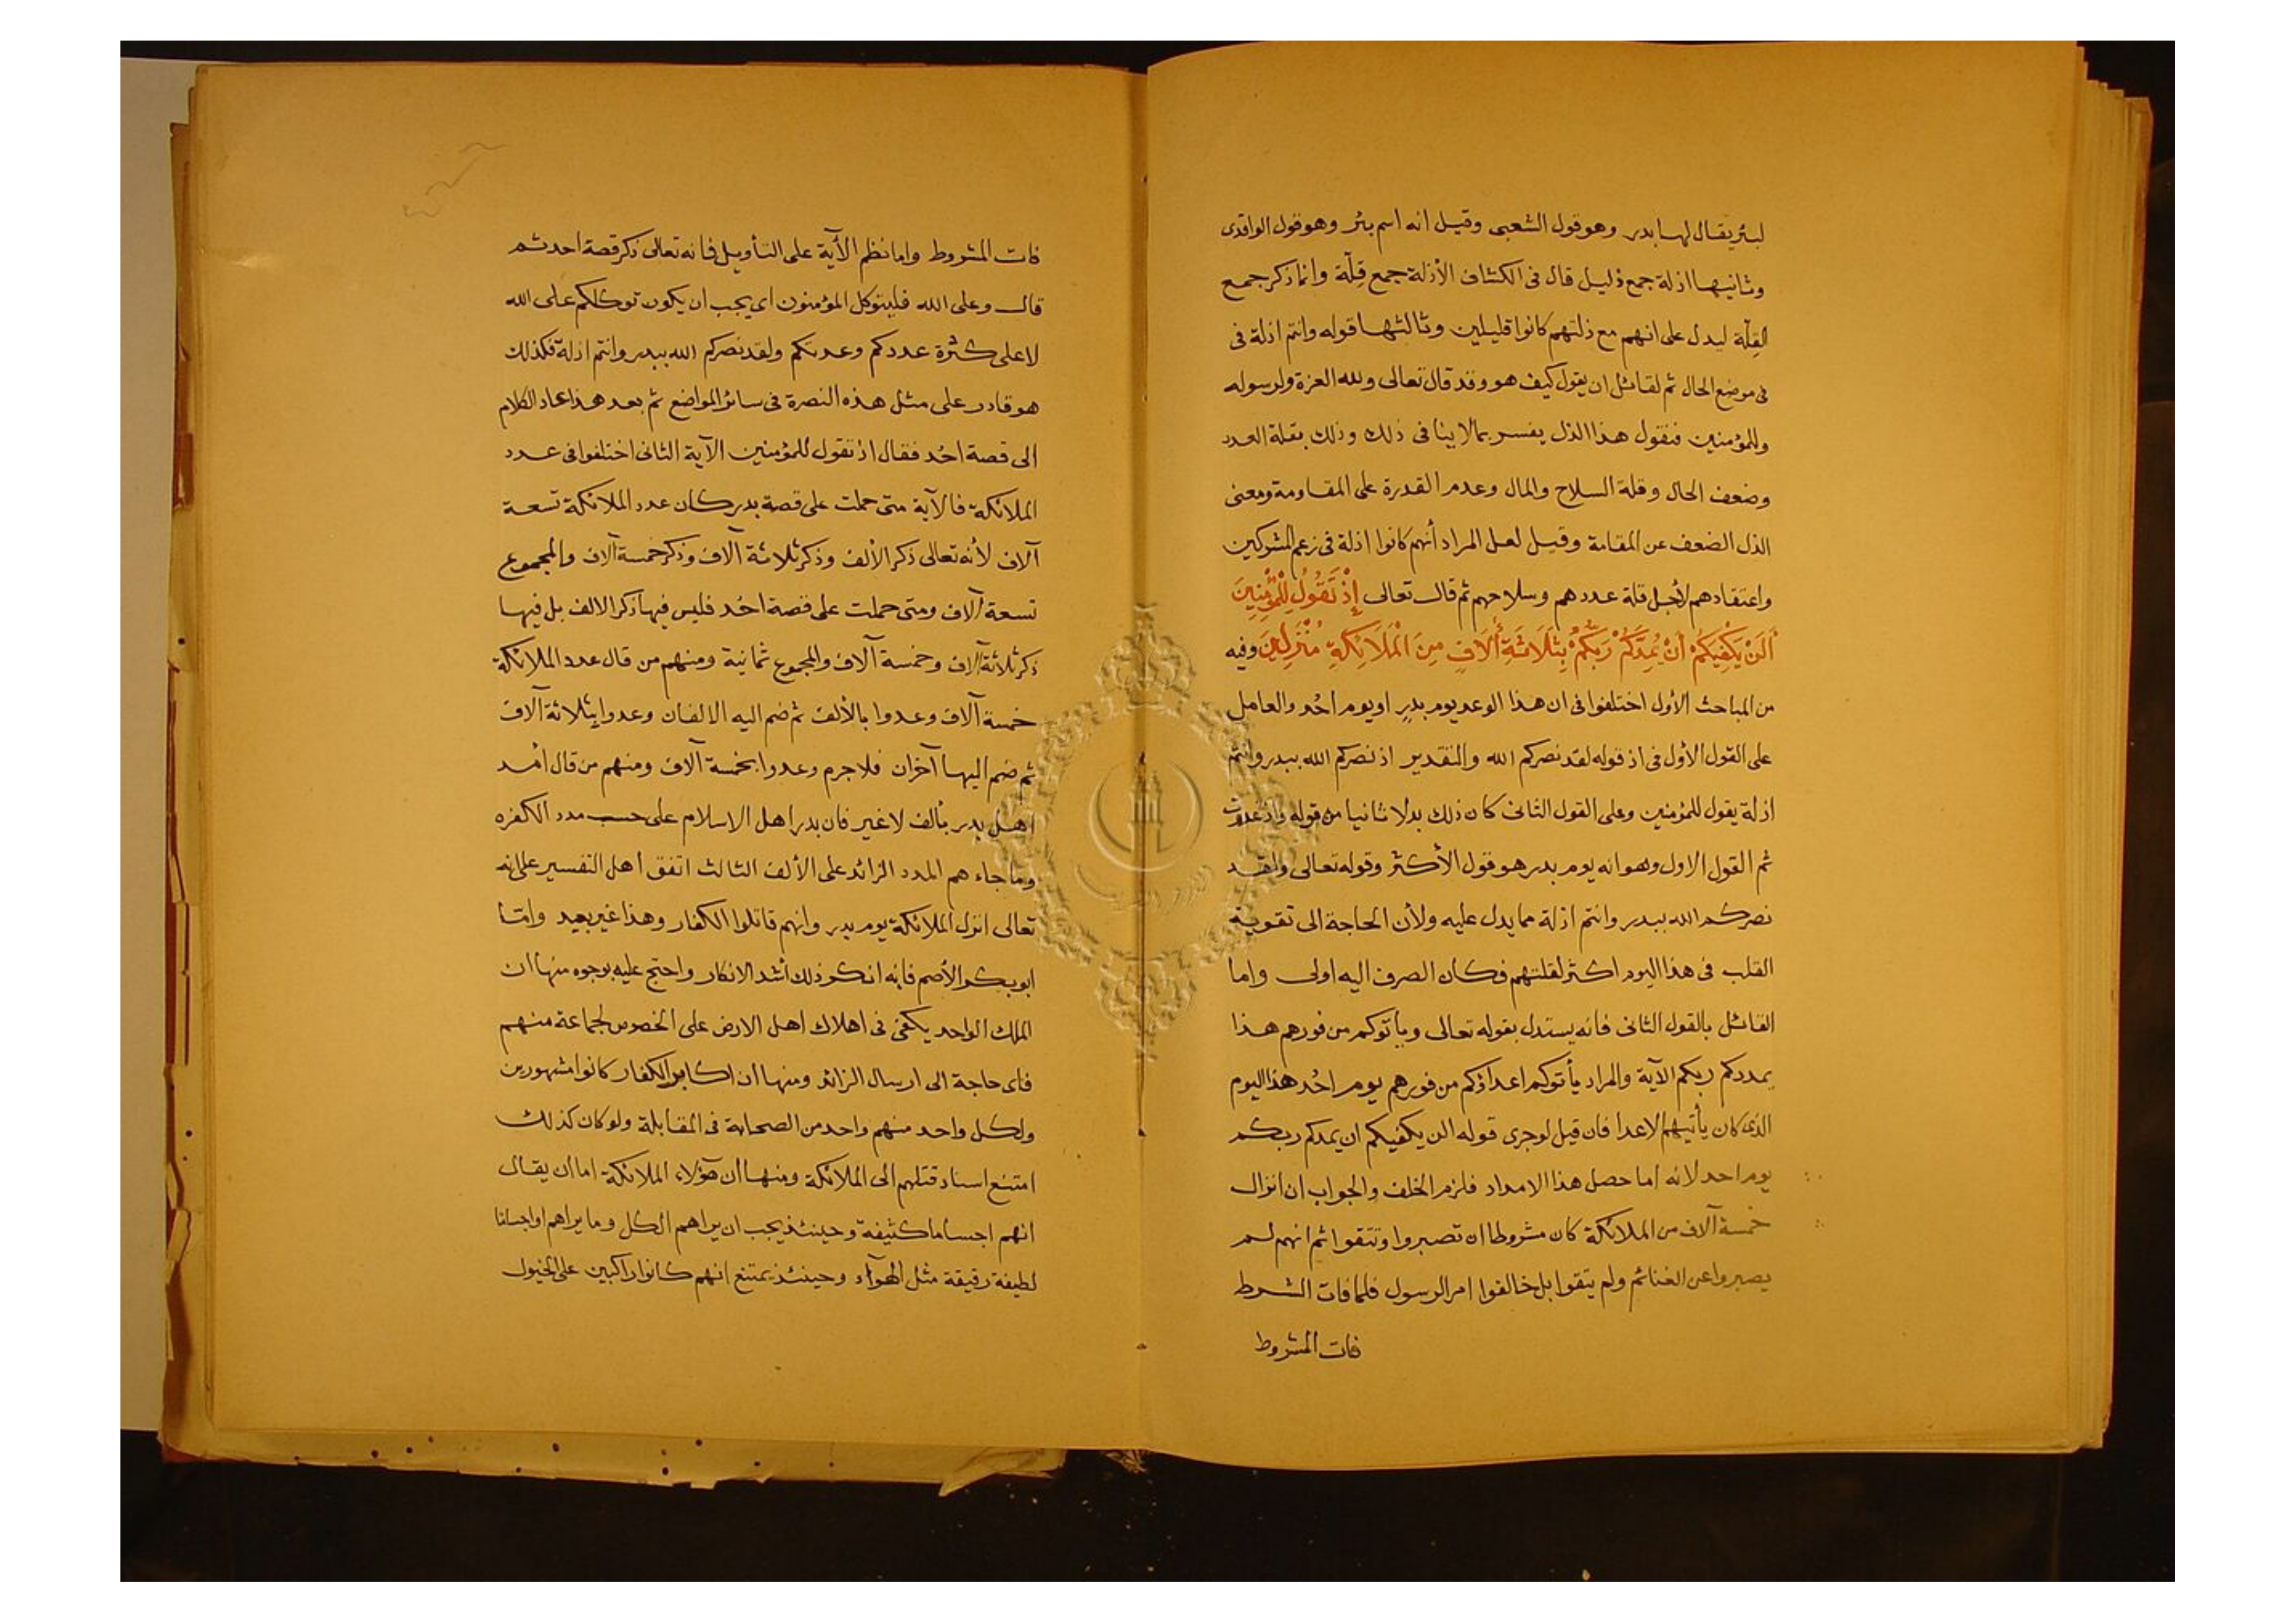 لبئر يقال لها بدر وهو قول الشعبى وقيل انه اسم بئر وهو قول الواقدى
وثانيها اذلة جمع ذليل قال فى الكشاف الأذلة جمع قِلّة وانما ذكر جمع
القِلّة ليدل على انهم مع ذلتهم كانوا قليلين وثالثها قوله وانتم اذلة فى
فى موضع الحال ثم لقائل ان يقول كيف هو وقد قال تعالى ولله العزة ولرسوله
وللمؤمنين فنقول هذا الذل يفسر بما لا ينافى ذلك وذلك بقلة العدد
وضعف الحال وقلة السلاح والمال وعدم القدرة على المقاومة ومعنى
الذل الضعف عن المقامة وقيل لعل المراد أنهم كانوا اذلة فى زعم المشركين
واعتقادهم لأجل قلة عددهم وسلاحهم ثم قال تعالى إِذْ تَقُولُ لِلْمُؤْمِنِينَ
أَلَنْ يَكْفِيَكُمْ أَنْ يُمِدَّكُمْ رَبُّكُمْ بِثَلَاثَةِ أٓلَافٍ مِنَ الْمَلَائِكَةِ مُنْزَلِينَ وفيه
من المباحث الأول اختلفوا فى ان هذا الوعد يوم بدرٍ او يوم احُد والعامل
على القول الأول فى اذ قوله لقد نصركم الله والتقدير اذ نصركم الله ببدر وانتم
اذلة يقول للمؤمنين وعلى القول الثانى كان ذلك بدلا ثانيا من قوله واذ غدوت
ثم القول الاول وهو انه يوم بدر هو قول الأكثر وقوله تعالى ولقد
نصركم الله ببدر وانتم اذلة مما يدل عليه ولأن الحاجة الى تقوية
القلب فى هذا اليوم اكثر لقلتهم فكان الصرف اليه اولى واما
القائل بالقول الثانى فانه يستدل بقوله تعالى ويأتوكم من فورهم هذا
يمددكم ربكم الآية والمراد يأتوكم اعداؤكم من فورهم يوم احُد هذا اليوم
الذى كان يأتيهم الاعدا فان قيل لو جرى قوله الن يكفيكم ان يمدكم ربكم
يوم احد لانه اما حصل هذا الامداد فلزم الخلف والجواب ان انزال
خمسة آلاف من الملائكة كان مشروطا ان تصبروا وتتقوا ثم انهم لم
يصبروا عن الغنائم ولم يتقوا بل خالفوا امر الرسول فلما فات الشرط
فات المشروط
فات المشروط واما نظم الآية على التأويل فانه تعالى ذكر قصة احد ثم
قال وعلى الله فليتوكل المؤمنون اى يجب ان يكون توكلكم على الله
لا على كثرة عددكم وعدتكم ولقد نصركم الله ببدر وانتم اذلة فكذلك
هو قادر على مثل هذه النصرة فى سائر المواضع ثم بعد هذا عاد الكلام
الى قصة احُد فقال اذ تقول للمؤمنين الآية الثانى اختلفوا فى عدد
الملائكة فالآية متى حملت على قصة بدر كان عدد الملائكة تسعة
آلاف لأنه تعالى ذكر الألف وذكر ثلاثة آلاف وذكر خمسة آلاف والمجموع
تسعة آلاف ومتى حملت على قصة احُد فليس فيها ذكر الالف بل فيها
ذكر ثلاثة آلاف وخمسة آلاف والمجموع ثمانية ومنهم من قال عدد الملائكة
خمسة آلاف وعدوا بالألف ثم ضم اليه الالفان وعدوا بثلاثة آلاف
ثم ضم اليها آخران فلاجرم وعدوا بخمسة آلاف ومنهم من قال أمد
أهل بدر بألف لا غير فان بدرا هل الاسلام على حسب مدد الكفره
وما جاء هم المدد الزائد على الألف الثالث اتفق أهل التفسير على انه
تعالى انزل الملائكة يوم بدر وانهم قاتلوا الكفار وهذا غير بعيد وامّا
ابو بكر الأصم فانه انكر ذلك أشد الانكار واحتج عليه بوجوه منها ان
الملك الواحد يكفى فى اهلاك اهل الارض على الخصوص لجماعة منهم
فاى حاجة الى ارسال الزائد ومنها ان اكابر الكفار كانوا مشهورين
ولكل واحد منهم واحد من الصحابة فى المقابلة ولو كان كذلك
امتنع اسناد قتلهم الى الملائكة ومنها ان هٓؤلاء الملائكة اما ان يقال
انهم اجساما كثيفة وحينئذ يجب ان يراهم الكل وما يراهم او اجساما
لطيفة رقيقة مثل الهوآء وحينئذ يمتنع انهم كانوا راكبين على الخيول